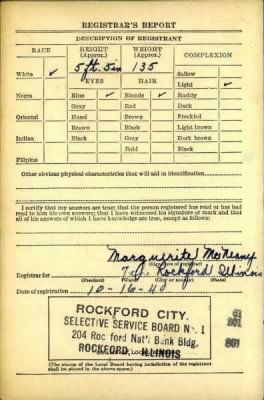 REGISTRAR'S REPORT
DESCRIPTION OF REGISTRANT
RACE HEIGHT (Approx.) WEIGHT (Approx.) COMPLEXION
White ✓ 5 ft. 5 in 135 Sallow
EYES HAIR Light ✓
Negro Blue ✓ Blonde ✓ Ruddy
Gray Red Dark
Oriental Hazel Brown Freckled
Brown Black Light brown
Indian Black Gray Dark brown
Bald Black
Filipino
Other obvious physical characteristics that will aid in identification
I certify that my answers are true; that the person registered has read or has had
read to him his own answers; that I have witnessed his signature or mark and that
all of his answers of which I have knowledge are true, except as follows:
Marguerite
(Signature of registrar)
Registrar for Rockford Illinois
(Precinct) (Ward) (City or county) (State)
Date of registration 10-16-40
ROCKFORD CITY
SELECTIVE SERVICE BOARD No. 1
204 Rockford Nat'l. Bank Bldg.
ROCKFORD, ILLINOIS
(The stamp of the Local Board having jurisdiction of the registrant
shall be placed in the above space.)